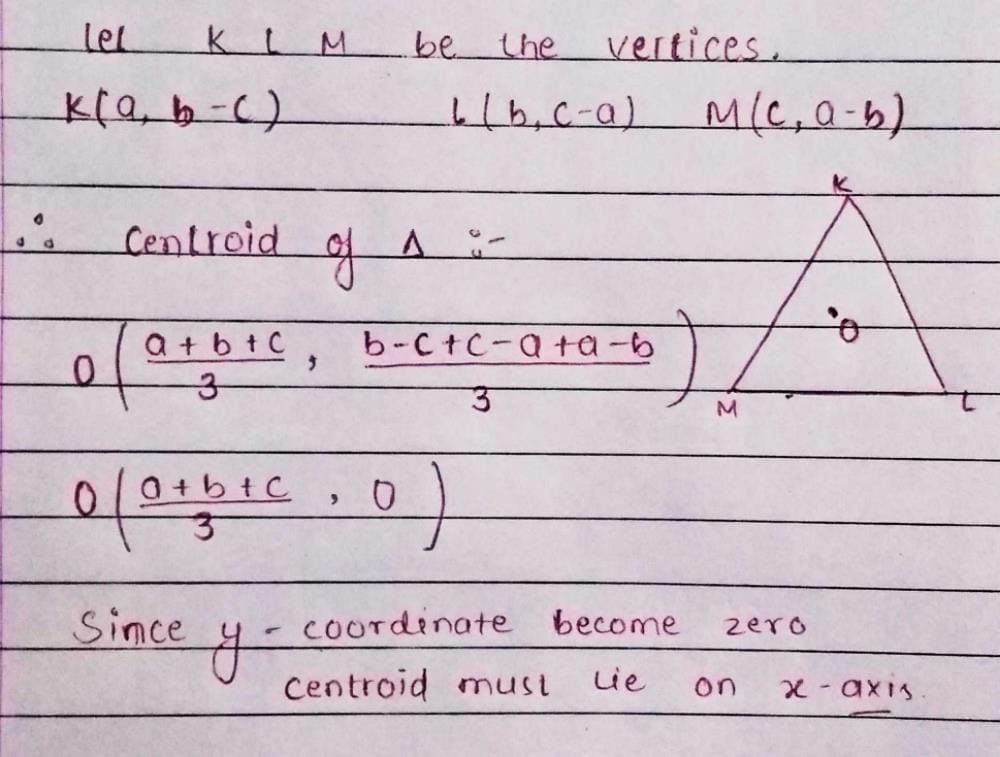 Let K L M be the vertices.
K(a, b-c) L(b, c-a) M(c, a-b)
K
∴ Centroid of Δ :-
O(a+b+c/3, b-c+c-a+a-b/3)
O
M L
O(a+b+c/3, 0)
Since y-coordinate become zero
centroid must lie on x-axis.